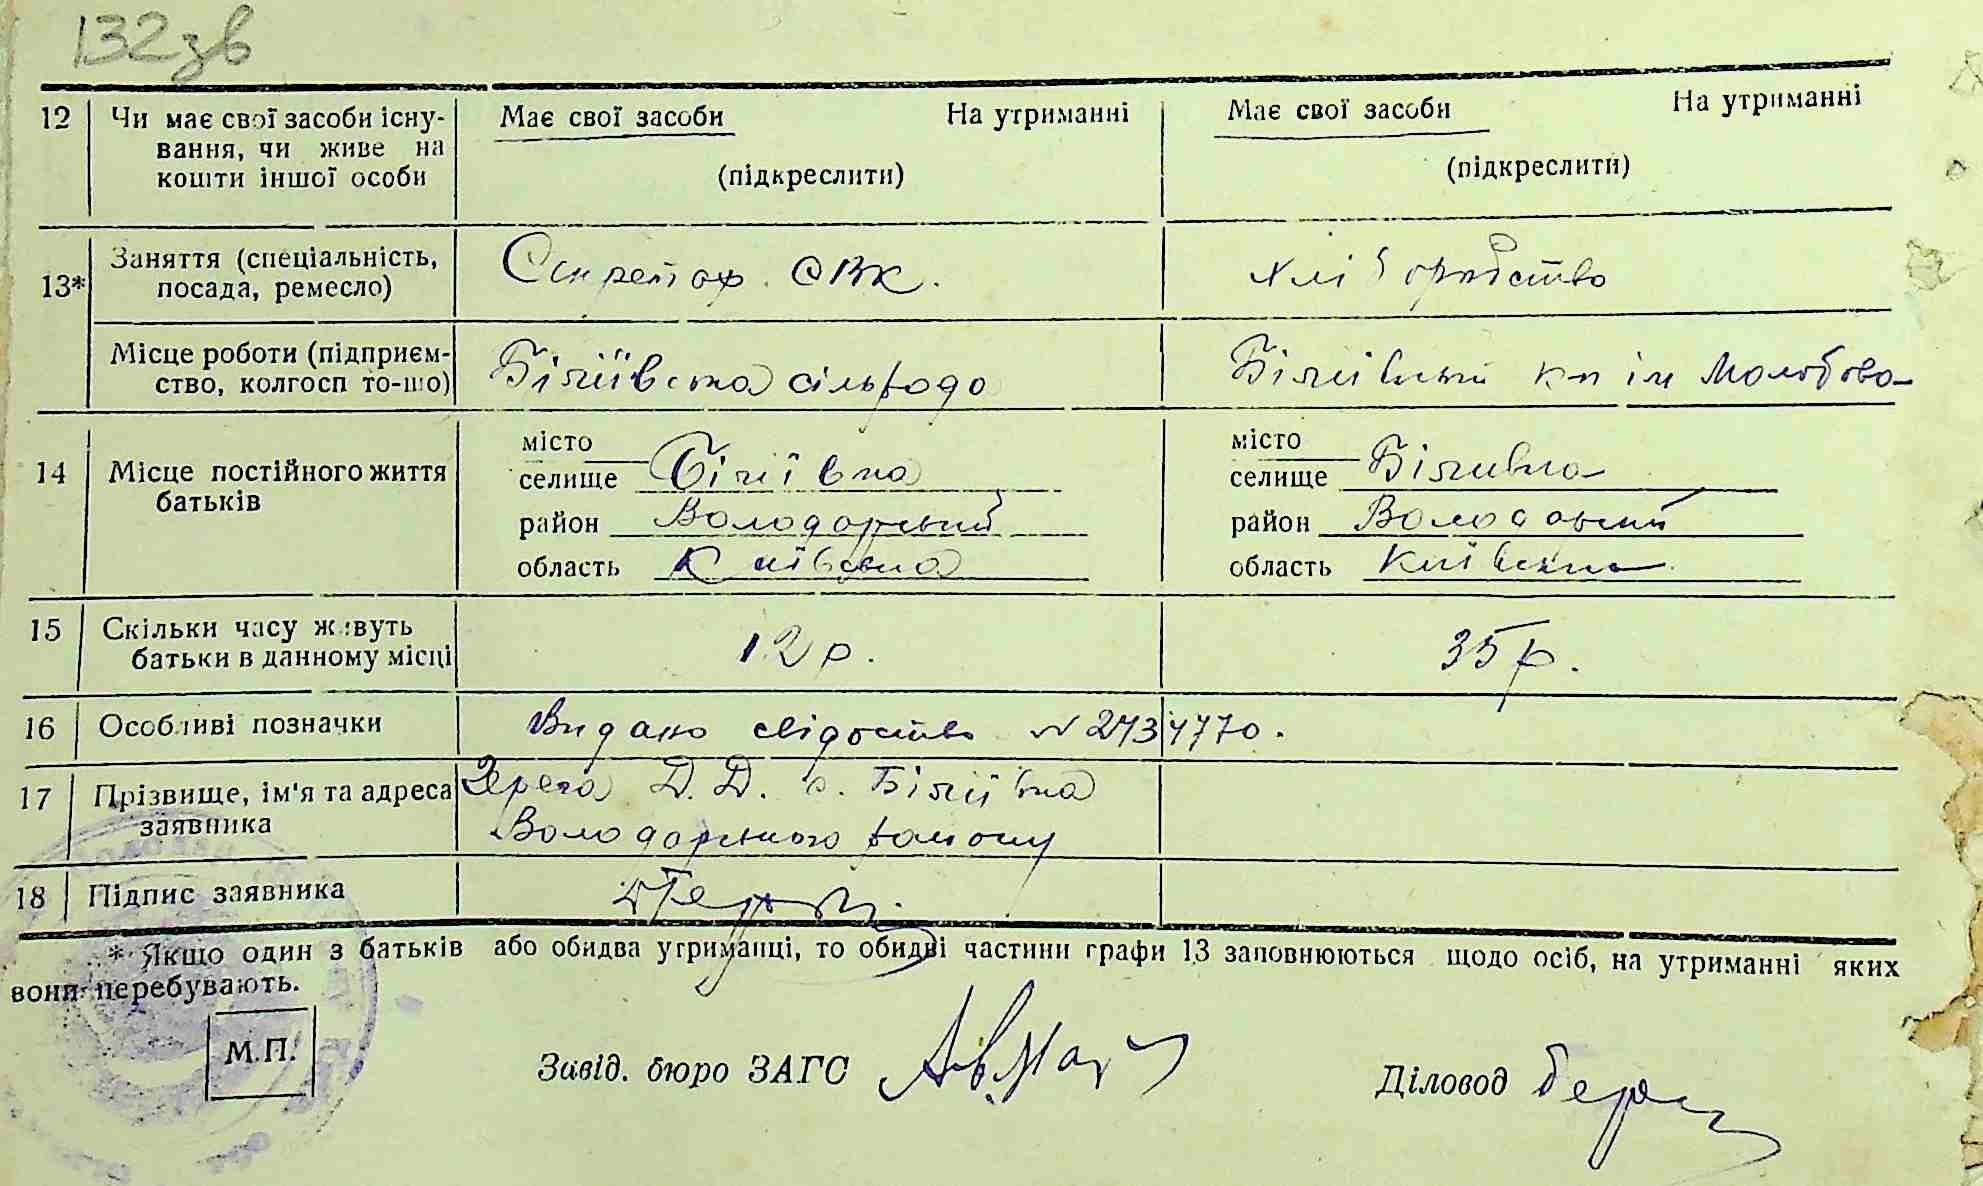 132зв
12 Чи має свої засоби існу- Має свої засоби На утриманні Має свої засоби На утриманні
вання, чи живе на
кошти іншої особи (підкреслити) (підкреслити)
13* Заняття (спеціальність, Секретар. СВК. хліборобство
посада, ремесло)
Місце роботи (підприєм- Біліївська сільрада Біліївський к-п ім Молотова
ство, колгосп то-що)
14 Місце постійного життя місто місто
батьків селище Біліївка селище Біліивка
район Володарський район Володарський
область Київська область Київська
15 Скільки часу живуть 12 р. 35 р.
батьки в данному місці
16 Особливі позначки Видано свідоцтво N 2434770.
17 Прізвище, ім'я та адреса Д. Д. с. Біліївка
заявника Володарського району
18 Підпис заявника
* Якщо один з батьків або обидва утриманці, то обидві частини графи 13 заповнюються щодо осіб, на утриманні яких
вони перебувають.
М.П.
Завід. бюро ЗАГС Діловод